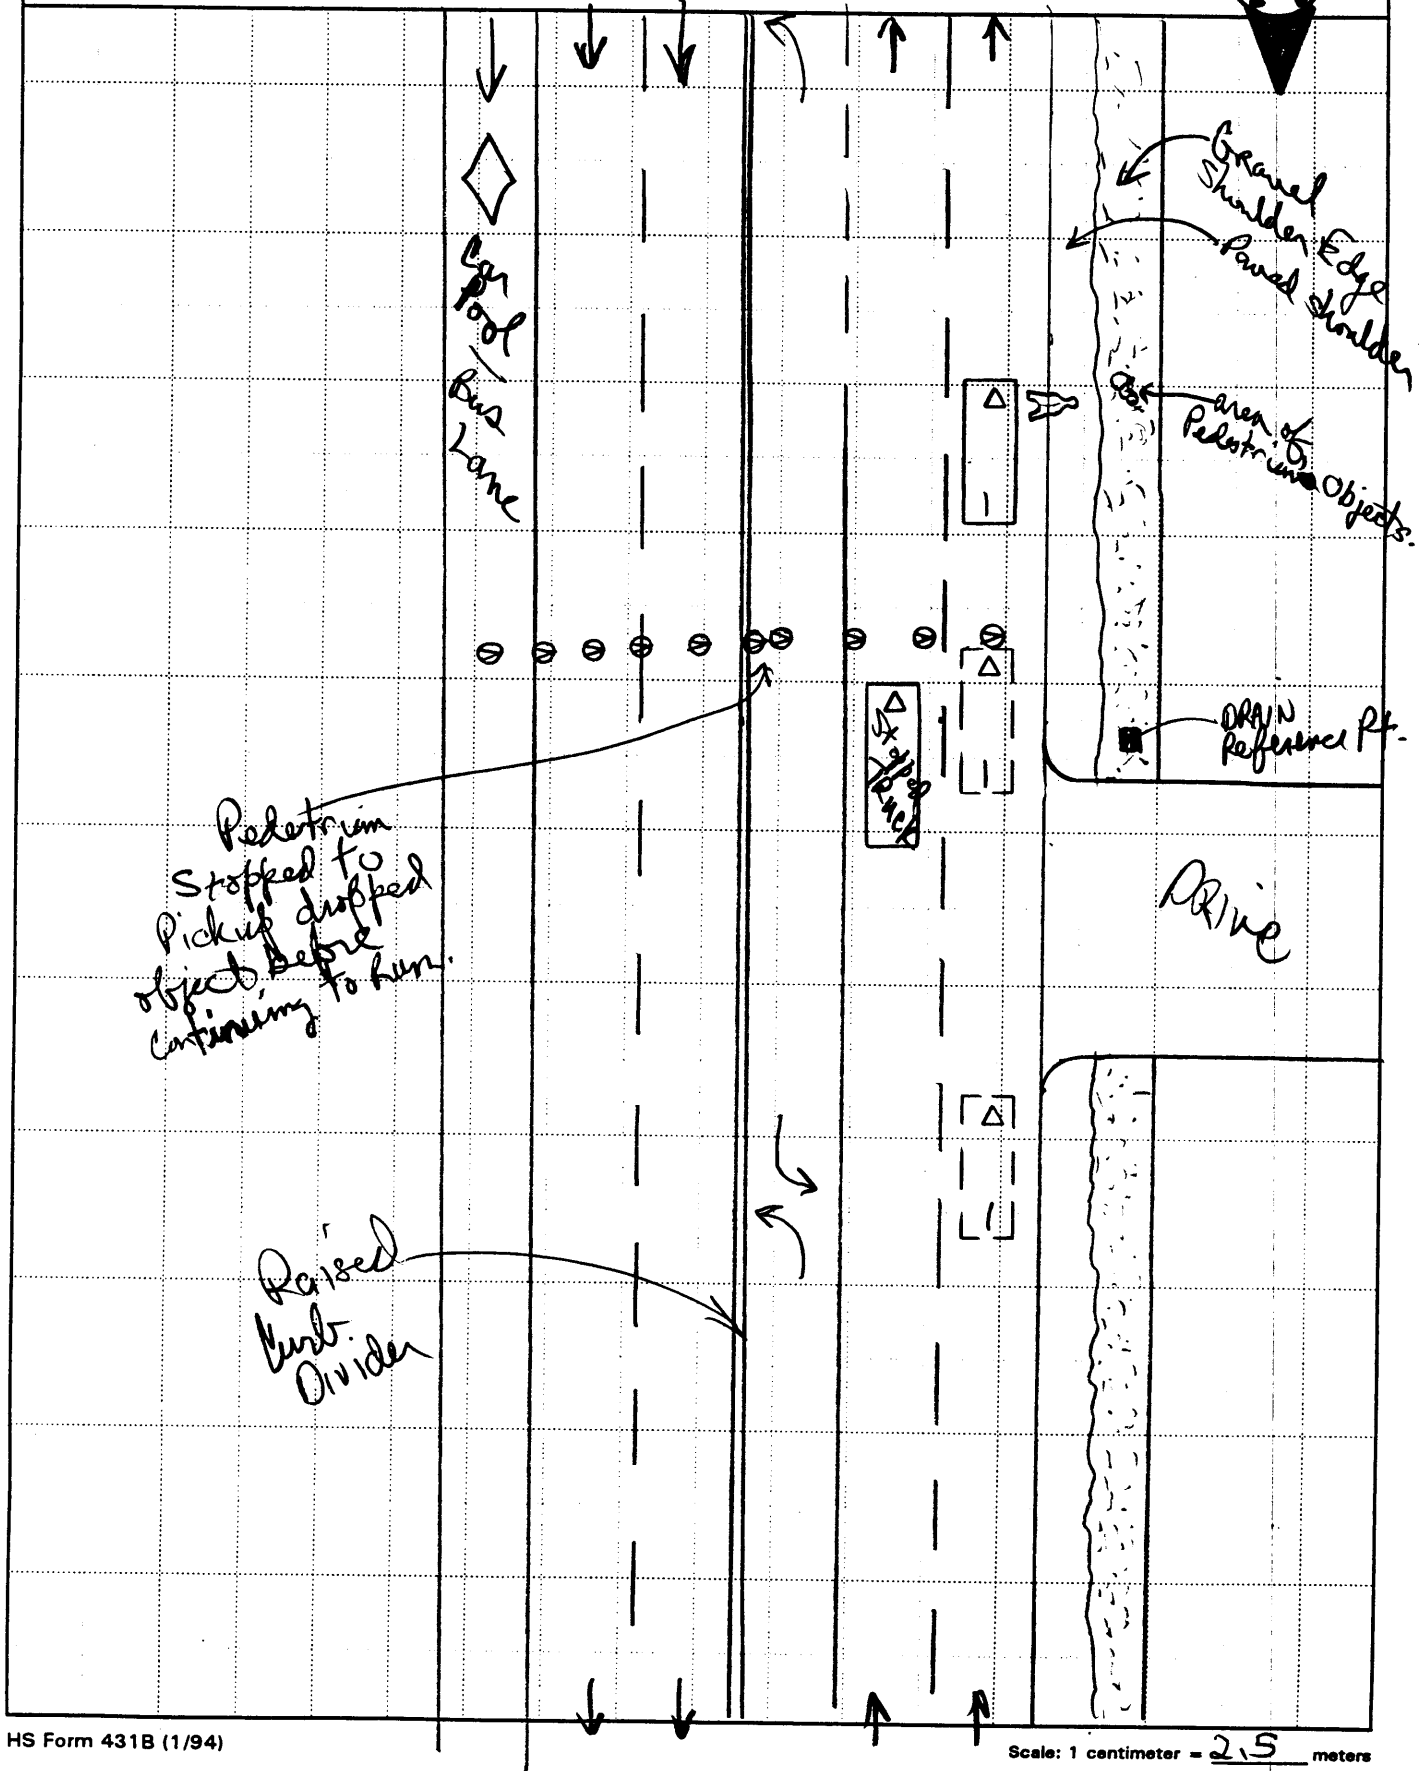 Car
Pool
/
Bus
Lane
Gravel
Shoulder Edge
Paved Shoulder
area of
Pedestrian Objects.
DRAIN
Reference Pt.
Stopped
TRUCK
1
1
1
DRive
Pedestrian
Stopped to
Pickup dropped
object before
continuing to Run.
Raised
Curb.
Divider
HS Form 431B (1/94)
Scale: 1 centimeter = 2.5 meters